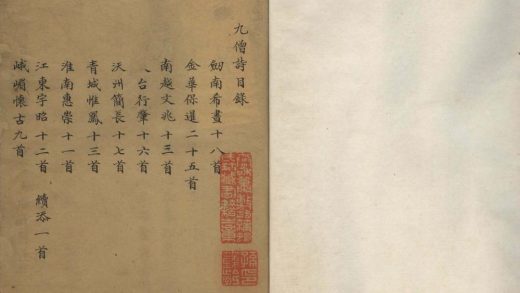 九僧詩目錄
劒南希晝十八首
金華保暹二十五首
南越文兆十三首
台行肇十六首
沃州簡長十七首
青城惟鳳十三首
淮南惠崇十一首
江東宇昭十二首 續添一首
峨嵋懷古九首